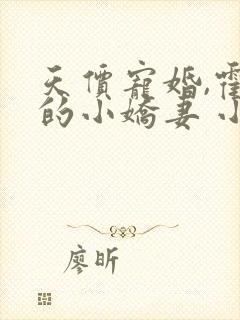 天價寵婚,霍
的小嬌妻 小
廖昕